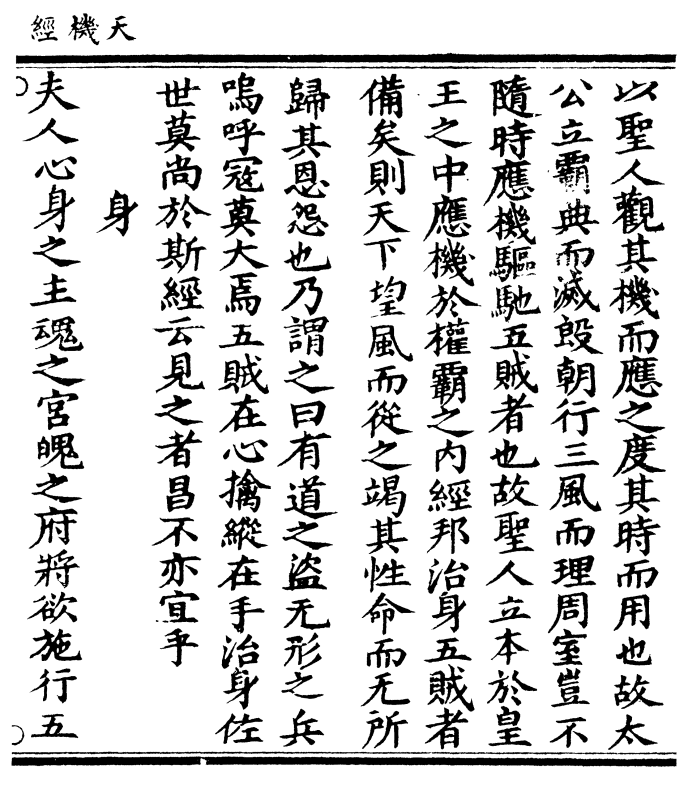 天機經
以聖人觀其機而應之度其時而用也故太
公立霸典而滅殷朝行三風而理周室豈不
隨時應機驅馳五賊者也故聖人立本於皇
王之中應機於權霸之內經邦治身五賊者
備矣則天下望風而從之竭其性命而无所
歸其恩怨也乃謂之曰有道之盜无形之兵
嗚呼寇莫大焉五賊在心擒縱在手治身佐
世莫尚於斯經云見之者昌不亦宜乎
身
夫人心身之主魂之宮魄之府將欲施行五